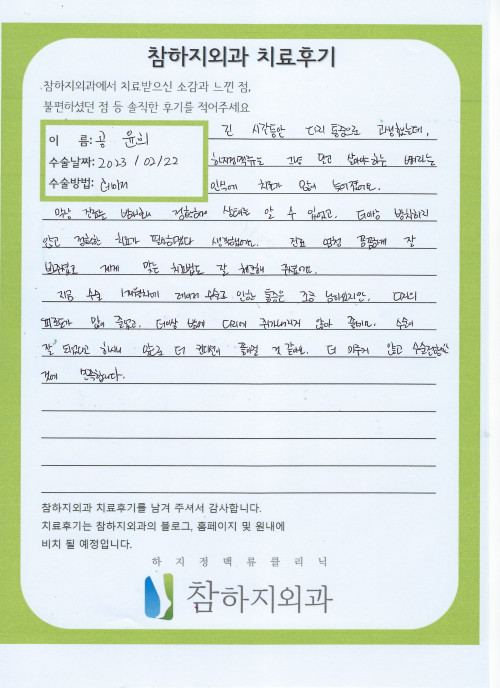 참하지외과 치료후기
참하지외과에서 치료받으신 소감과 느낀 점,
불편하셨던 점 등 솔직한 후기를 적어주세요
이 름: 공 윤희
수술날짜: 2023 / 02/22
수술방법: 레이저
긴 시간동안 다리 통증으로 고생했는데,
하지정맥류도 그냥 안고 살아야 하는 병이라는
인식에 치료가 많이 늦어졌어요.
막상 진료를 받아보니 정확하게 상태를 알 수 있었고, 더이상 방치하지
않고 정확한 치료가 필요하겠다 생각했어요. 진료 역시 꼼꼼하게 잘
봐주셨고 제게 맞는 치료법도 잘 제안해 주셨어요.
지금 수술 1개월차에 레이저 수술로 인한 통증은 조금 남아있지만, 다리의
피로도가 많이 줄었고, 더이상 밤에 다리에 쥐가나지 않아 좋네요. 수술이
잘 되었다고 하시니 앞으로 더 컨디션이 좋아질 것 같아요. 더 미루지 않고 수술
것에 만족합니다.
참하지외과 치료후기를 남겨 주셔서 감사합니다.
치료후기는 참하지외과의 블로그, 홈페이지 및 원내에
비치 될 예정입니다.
하지정맥류클리닉
참하지외과